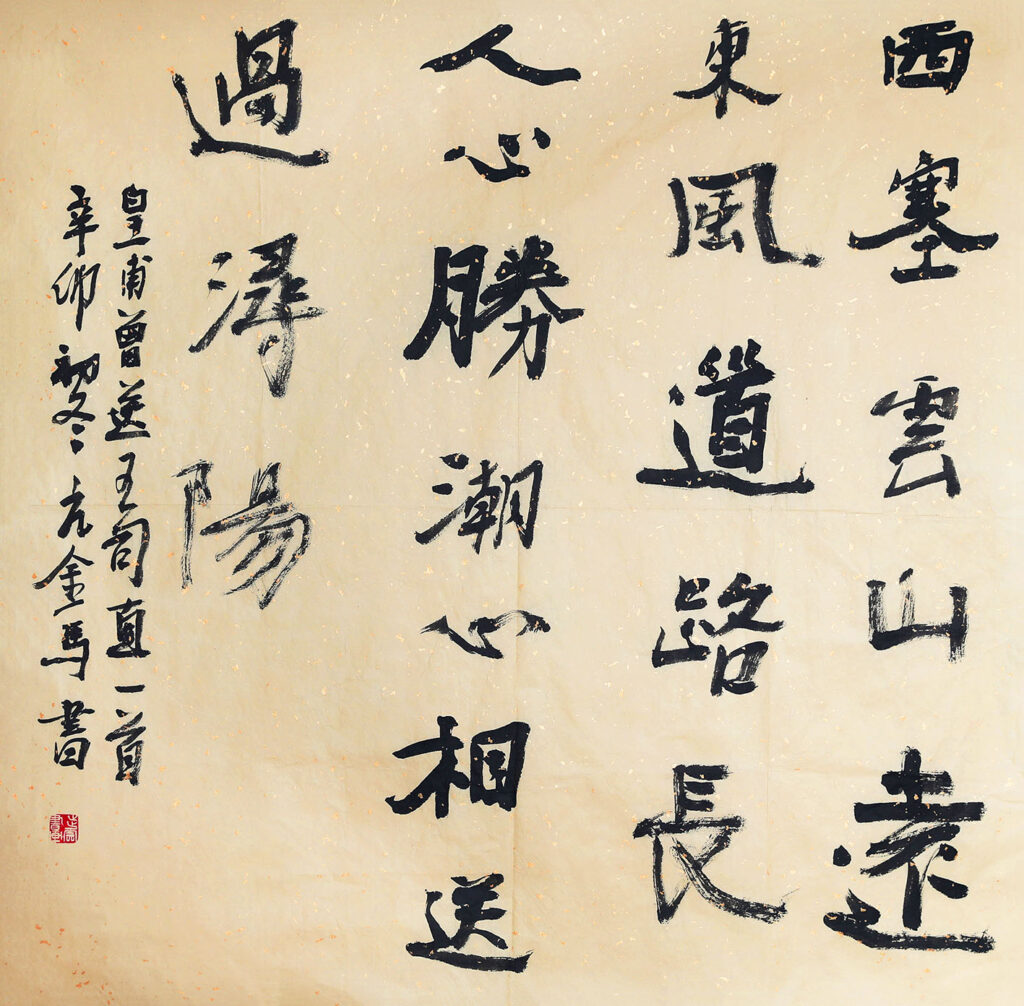 西塞雲山遠
東風道路長
人心勝潮心相送
過潯陽
皇甫曾送王司直一首
辛卯初冬金馬書